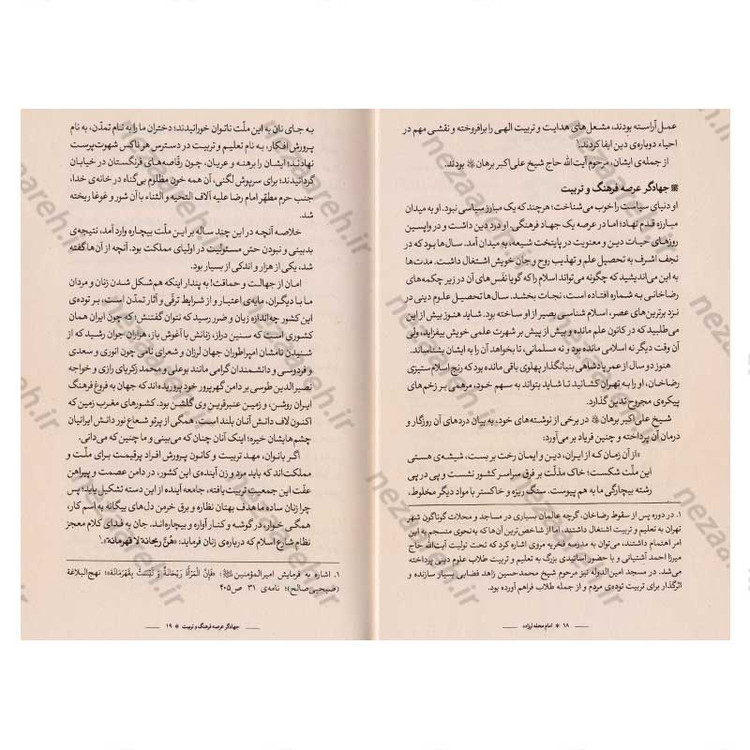 عمل آراسته بودند، مشعل‌های هدایت و تربیت الهی را برافروخته و نقشی مهم در
احیاء دوباره‌ی دین ایفا کردند.¹
از جمله‌ی ایشان، مرحوم آیت‌الله حاج شیخ علی‌اکبر برهان بودند.
جهادگر عرصه فرهنگ و تربیت
او دنیای سیاست را خوب می‌شناخت؛ هرچند که یک مبارز سیاسی نبود. او به میدان
مبارزه قدم نهاد؛ اما در عرصه یک جهاد فرهنگی. او درد دین داشت و در واپسین
روزهای حیات دین و معنویت در پایتخت شیعه، به میدان آمد. سال‌ها بود که در
نجف اشرف به تحصیل علم و تهذیب روح و جان خویش اشتغال داشت. مدت‌ها
به این می‌اندیشید که چگونه می‌تواند اسلام را که گویا نفس‌های آن در زیر چکمه‌های
رضاخانی به شماره افتاده است، نجات بخشد. سال‌ها تحصیل علوم دینی در
نزد برترین‌های عصر، اسلام شناسی بصیر از او ساخته بود. شاید هنوز بیش از این
می‌طلبید که در کانون علم مانده و بیش از پیش بر شهرت علمی خویش بیفزاید، ولی
آن وقت دیگر نه اسلامی مانده بود و نه مسلمانی، تا بخواهد آن را به ایشان بشناساند.
هنوز دو سال از عمر پادشاهی بنیانگذار پهلوی باقی مانده بود که رنج اسلام ستیزی
رضاخان، او را به تهران کشانید تا شاید بتواند به سهم خود، مرهمی بر زخم‌های
پیکره‌ی مجروح تدین گذارد.
شیخ علی‌اکبر برهان در برخی از نوشته‌های خود، به بیان دردهای آن روزگار و
درمان آن پرداخته و چنین فریاد برمی‌آورد:
«از آن زمان که از ایران، دین و ایمان رخت بر بست، شیشه‌ی هستی
این ملّت شکست؛ خاک مذلّت بر فرق سراسر کشور نشست و پی در پی
رشته بیچارگی ما به هم پیوست. سنگ ریزه و خاکستر با مواد دیگر مخلوط،
۱. در دوره پس از سقوط رضاخان، گرچه عالمان بسیاری در مساجد و محلات گوناگون شهر
تهران به تعلیم و تربیت اشتغال داشتند، اما از شاخص‌ترین آن‌ها که به‌نحوی منسجم به این
امر اهتمام داشتند، می‌توان به مدرسه فخریه مروی اشاره کرد که تحت تولیت آیت‌الله حاج
میرزا احمد آشتیانی و با حضور اساتیدی بزرگ به تعلیم و تربیت طلاب علوم دینی پرداخته
می‌شد. در مسجد امین‌الدوله نیز مرحوم شیخ محمدحسین زاهد فضایی بسیار سازنده و
اثرگذار برای تربیت توده‌ی مردم و از جمله طلاب فراهم آورده بود.
۱۸ * امام محله لرزاده
به جای نان به این ملّت ناتوان خورانیدند؛ دختران ما را به نام تمدّن، به نام
پرورش افکار، به نام تعلیم و تربیت در دسترس هر ناکس شهوت‌پرست
نهادند؛ ایشان را برهنه و عریان، چون رقاصه‌های فرنگستان در خیابان
گردانیدند؛ برای سرپوش لگنی، آن همه خون مظلوم بی‌گناه در خانه‌ی خدا،
جنب حرم مطهّر امام رضا علیه آلاف التحیه و الثناء با آن شور و غوغا ریخته
شد.
خلاصه آنچه در این چند ساله بر این ملّت بیچاره وارد آمد، نتیجه‌ی
بدبینی و نبودن حسّ مسئولیت در اولیای مملکت بود. آنچه از آن‌ها گفته
شد، یکی از هزار و اندکی از بسیار بود.
امان از جهالت و حماقت! به پندار اینکه هم‌شکل شدن زنان و مردان
ما با دیگران، مایه‌ی اعتبار و از شرایط ترقّی و آثار تمدّن است، بر توده‌ی
این کشور چه اندازه زیان و ضرر رسید که نتوان گفتنش؛ که چون ایران همان
کشوری است که سنین دراز، زنانش با آغوش باز، هزاران جوان رشید که از
شنیدن نامشان امپراطوران جهان لرزان و شعرای نامی چون انوری و سعدی
و فردوسی و دانشمندان گرامی مانند بوعلی و محمد زکریای رازی و خواجه
نصیرالدین طوسی بر دامن گهرپرور خود پروریده‌اند که جهان به فروغ فرهنگ
ایران روشن، و زمین عنبرقرین وی گلشن بود. کشورهای مغرب زمین که
اکنون لاف دانش آنان بلند است، همگی از پرتو شعاع نور دانش ایرانیان
چشم‌هایشان خیره؛ اینک آنان چنان که می‌بینی و ما چنین که می‌دانی.
اگر بانوان، مهد تربیت و کانون پرورش افراد پرقیمت برای ملّت و
مملکت‌اند که باید مرد و زن آینده‌ی این کشور، در دامن عصمت و پیراهن
عفّت این جمعیت تربیت یافته، جامعه آینده از این دسته تشکیل یابد؛ پس
چرا زنان ساده ما هدف بهتان نظاره و برق خرمن دل‌های بیگانه به اسم کار،
همگی خوار، در گوشه و کنار آواره و بیچاره‌اند. جان به فدای کلام معجز
نظام شارع اسلام که درباره‌ی زنان فرماید: «هُنَّ رَیحانَة لا قَهرمانَة».¹
۱. اشاره به فرمایش امیرالمؤمنین: «فَإِنَّ الْمَرْأَةَ رَیْحَانَةٌ وَ لَیْسَتْ بِقَهْرَمَانَةٍ»؛ نهج‌البلاغة
(صبحی صالح)؛ نامه‌ی ۳۱ ص۴۰۵
جهادگر عرصه فرهنگ و تربیت * ۱۹
nezaareh.ir